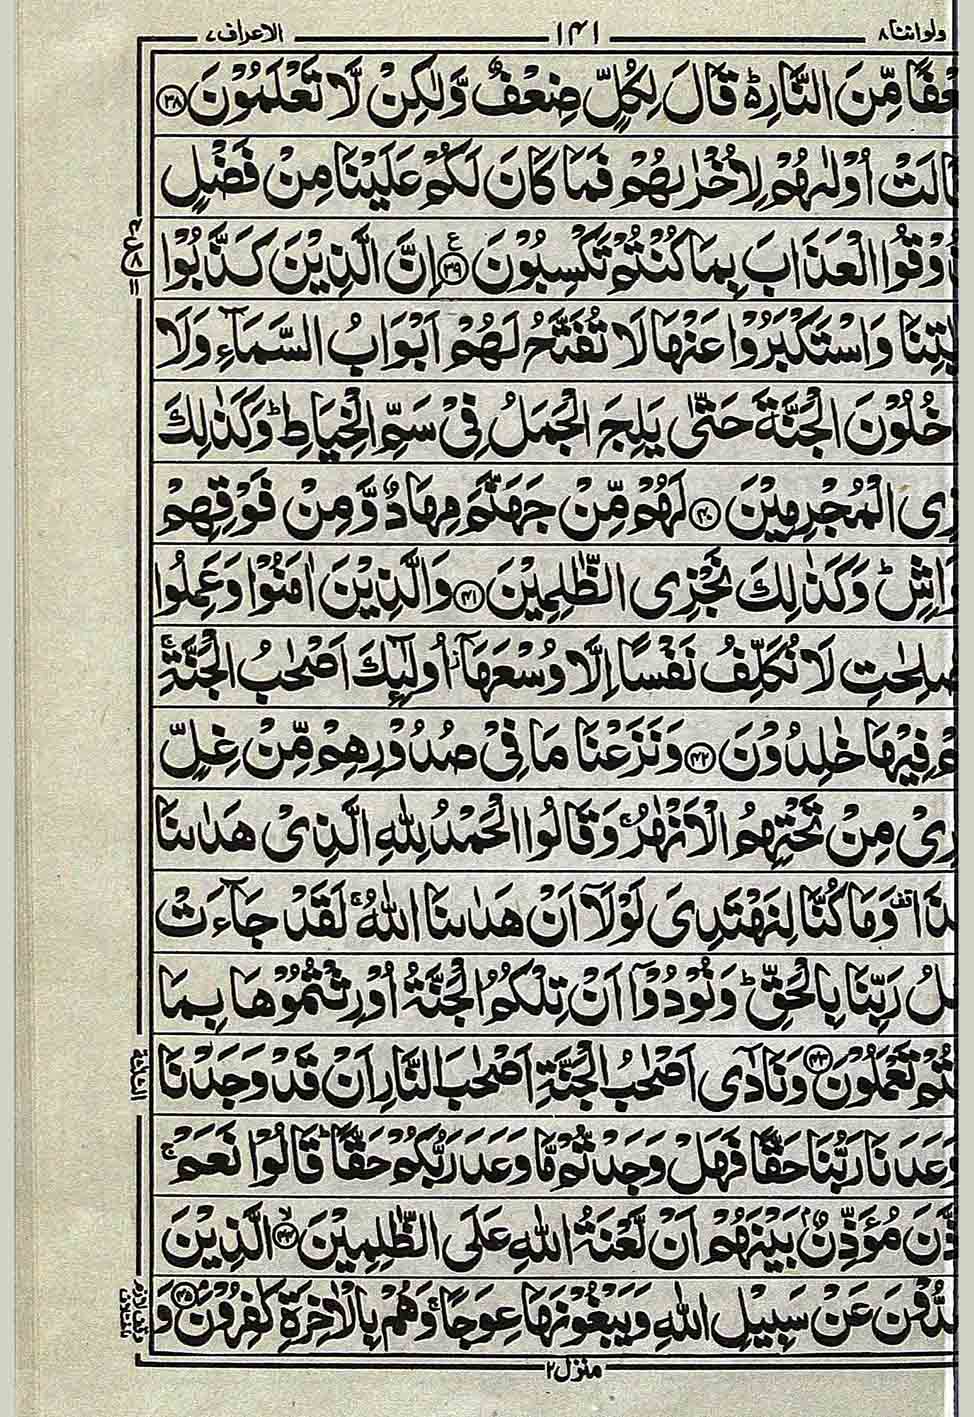 ولواننا ٨ ١٤١ الاعراف ٧
مِّنَ النَّارِ ؕ قَالَ لِكُلٍّ ضِعْفٌ وَّلٰكِنْ لَّا تَعْلَمُوْنَ ﴿۳۸﴾
اُوْلٰىهُمْ لِاُخْرٰىهُمْ فَمَا كَانَ لَكُمْ عَلَيْنَا مِنْ فَضْلٍ
الْعَذَابَ بِمَا كُنْتُمْ تَكْسِبُوْنَ ﴿۳۹﴾ ع اِنَّ الَّذِيْنَ كَذَّبُوْا
وَاسْتَكْبَرُوْا عَنْهَا لَا تُفَتَّحُ لَهُمْ اَبْوَابُ السَّمَآءِ وَلَا
الْجَنَّةَ حَتّٰى يَلِجَ الْجَمَلُ فِىْ سَمِّ الْخِيَاطِ ؕ وَكَذٰلِكَ
الْمُجْرِمِيْنَ ﴿۴۰﴾ لَهُمْ مِّنْ جَهَنَّمَ مِهَادٌ وَّمِنْ فَوْقِهِمْ
وَكَذٰلِكَ نَجْزِى الظّٰلِمِيْنَ ﴿۴۱﴾ وَالَّذِيْنَ اٰمَنُوْا وَعَمِلُوا
لَا نُكَلِّفُ نَفْسًا اِلَّا وُسْعَهَاۤ ز اُولٰٓئِكَ اَصْحٰبُ الْجَنَّةِ ۚ
فِيْهَا خٰلِدُوْنَ ﴿۴۲﴾ وَنَزَعْنَا مَا فِىْ صُدُوْرِهِمْ مِّنْ غِلٍّ
مِنْ تَحْتِهِمُ الْاَنْهٰرُ ۚ وَقَالُوا الْحَمْدُ لِلّٰهِ الَّذِىْ هَدٰىنَا
وَمَا كُنَّا لِنَهْتَدِىَ لَوْلَاۤ اَنْ هَدٰىنَا اللّٰهُ ۚ لَقَدْ جَآءَتْ
رَبِّنَا بِالْحَقِّ ؕ وَنُوْدُوْۤا اَنْ تِلْكُمُ الْجَنَّةُ اُوْرِثْتُمُوْهَا بِمَا
تَعْمَلُوْنَ ﴿۴۳﴾ وَنَادٰۤى اَصْحٰبُ الْجَنَّةِ اَصْحٰبَ النَّارِ اَنْ قَدْ وَجَدْنَا
وَعَدَنَا رَبُّنَا حَقًّا فَهَلْ وَجَدْتُّمْ مَّا وَعَدَ رَبُّكُمْ حَقًّا ؕ قَالُوْا نَعَمْ ۚ
مُؤَذِّنٌۢ بَيْنَهُمْ اَنْ لَّعْنَةُ اللّٰهِ عَلَى الظّٰلِمِيْنَ ﴿۴۴﴾ۙ الَّذِيْنَ
عَنْ سَبِيْلِ اللّٰهِ وَيَبْغُوْنَهَا عِوَجًا ۚ وَهُمْ بِالْاٰخِرَةِ كٰفِرُوْنَ ﴿۴۵﴾ۘ وَ
منزل ٢